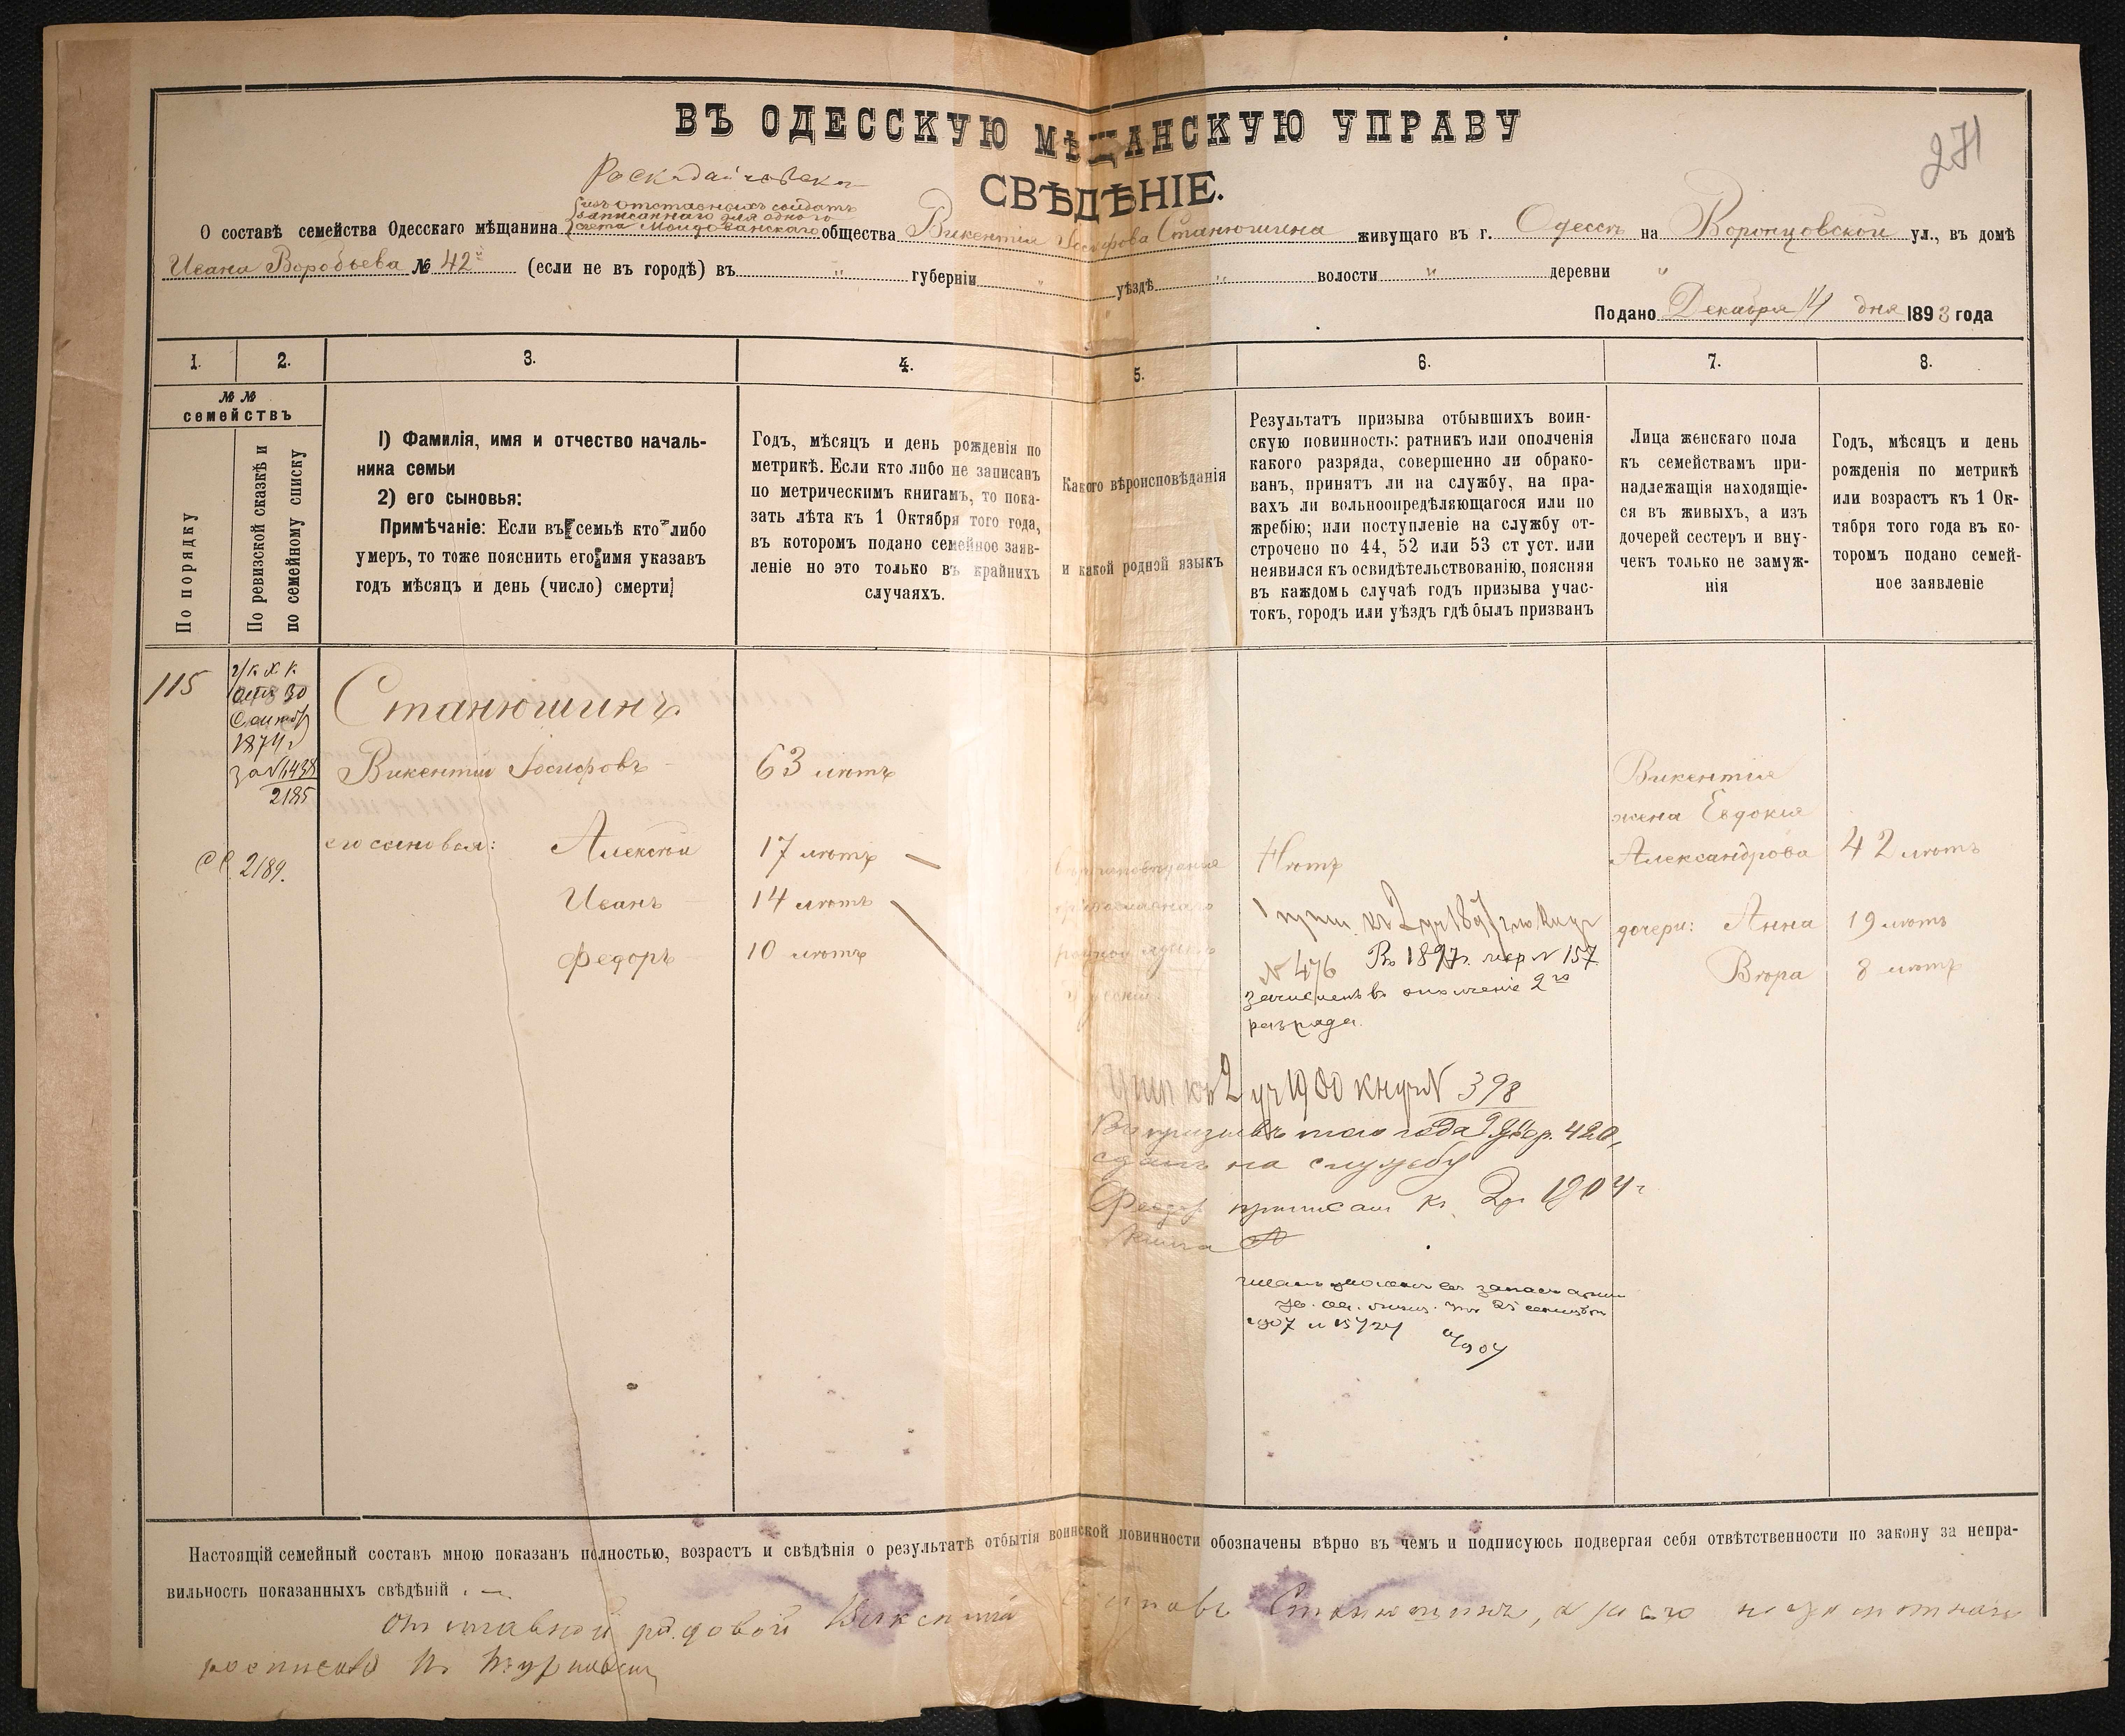 271
ВЪ ОДЕССКУЮ МѢЩАНСКУЮ УПРАВУ
СВѢДѢНІЕ.
изъ отставныхъ солдатъ
записаннаго для одного
счета Молдованскаго
О составѣ семейства Одесскаго мѣщанина общества Викентія Іосифова Станюшина живущаго въ г. Одессѣ на Воронцовской ул., въ домѣ
Ивана Воробьева № 42 (если не въ городѣ) въ " губерніи " уѣздѣ " волости " деревни "
Подано Декабря 14 дня 1893 года
1. 2. 3. 4. 5. 6. 7. 8.
№ №
семействъ
По порядку
По ревизской сказкѣ и
по семейному списку
1) Фамилія, имя и отчество началь-
ника семьи
2) его сыновья:
Примѣчаніе: Если въ семьѣ кто либо
умеръ, то тоже пояснить его имя указавъ
годъ мѣсяцъ и день (число) смерти
Годъ, мѣсяцъ и день рожденія по
метрикѣ. Если кто либо не записанъ
по метрическимъ книгамъ, то пока-
зать лѣта къ 1 Октября того года,
въ которомъ подано семейное заяв-
леніе но это только въ крайнихъ
случаяхъ.
Какого вѣроисповѣданія
и какой родной языкъ
Результатъ призыва отбывшихъ воин-
скую повинность: ратникъ или ополченія
какого разряда, совершенно ли обрако-
ванъ, принятъ ли на службу, на пра-
вахъ ли вольноопредѣляющагося или по
жребію; или поступленіе на службу от-
строчено по 44, 52 или 53 ст уст. или
неявился къ освидѣтельствованію, поясняя
въ каждомъ случаѣ годъ призыва учас-
токъ, городъ или уѣздъ гдѣ былъ призванъ
Лица женскаго пола
къ семействамъ при-
надлежащія находящіе-
ся въ живыхъ, а изъ
дочерей сестеръ и вну-
чекъ только не замуж-
нія
Годъ, мѣсяцъ и день
рожденія по метрикѣ
или возрастъ къ 1 Ок-
тября того года въ ко-
торомъ подано семей-
ное заявленіе
115
30
1874 г
за №
2185
2189.
Станюшинъ
Викентій Іосифовъ 63 лѣтъ
его сыновья: Алексѣй 17 лѣтъ
Иванъ 14 лѣтъ
Федоръ 10 лѣтъ
вѣроисповѣданія
православнаго
родной языкъ
русскій
Нѣтъ
№ 476 Въ 1897 г. жер № 157
зачисленъ въ ополченіе 2го
разряда.
къ 2 уч 1900 № 398
Въ призывъ того года жер. 420
сданъ на службу
Федоръ приписан къ 2 уч 1904 г
книга А
въ запасъ арміи
1907
Викентія
жена Евдокія
Александрова 42 лѣтъ
дочери: Анна 19 лѣтъ
Вѣра 8 лѣтъ
Настоящій семейный составъ мною показанъ полностью, возрастъ и свѣдѣнія о результатѣ отбытія воинской повинности обозначены вѣрно въ чемъ и подписуюсь подвергая себя отвѣтственности по закону за непра-
вильность показанныхъ свѣдѣній.
Отставной рядовой Викентій Станюшинъ, а за его неграмотного
росписався